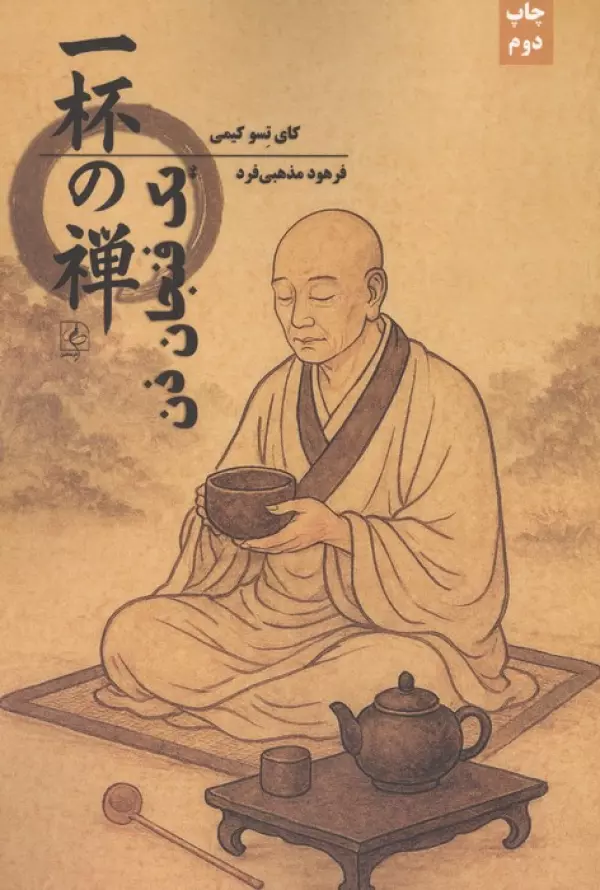 چاپ
دوم
一杯の禅
کای تِسو کیمی
فرهود مذهبی‌فرد
یک فنجان ذن